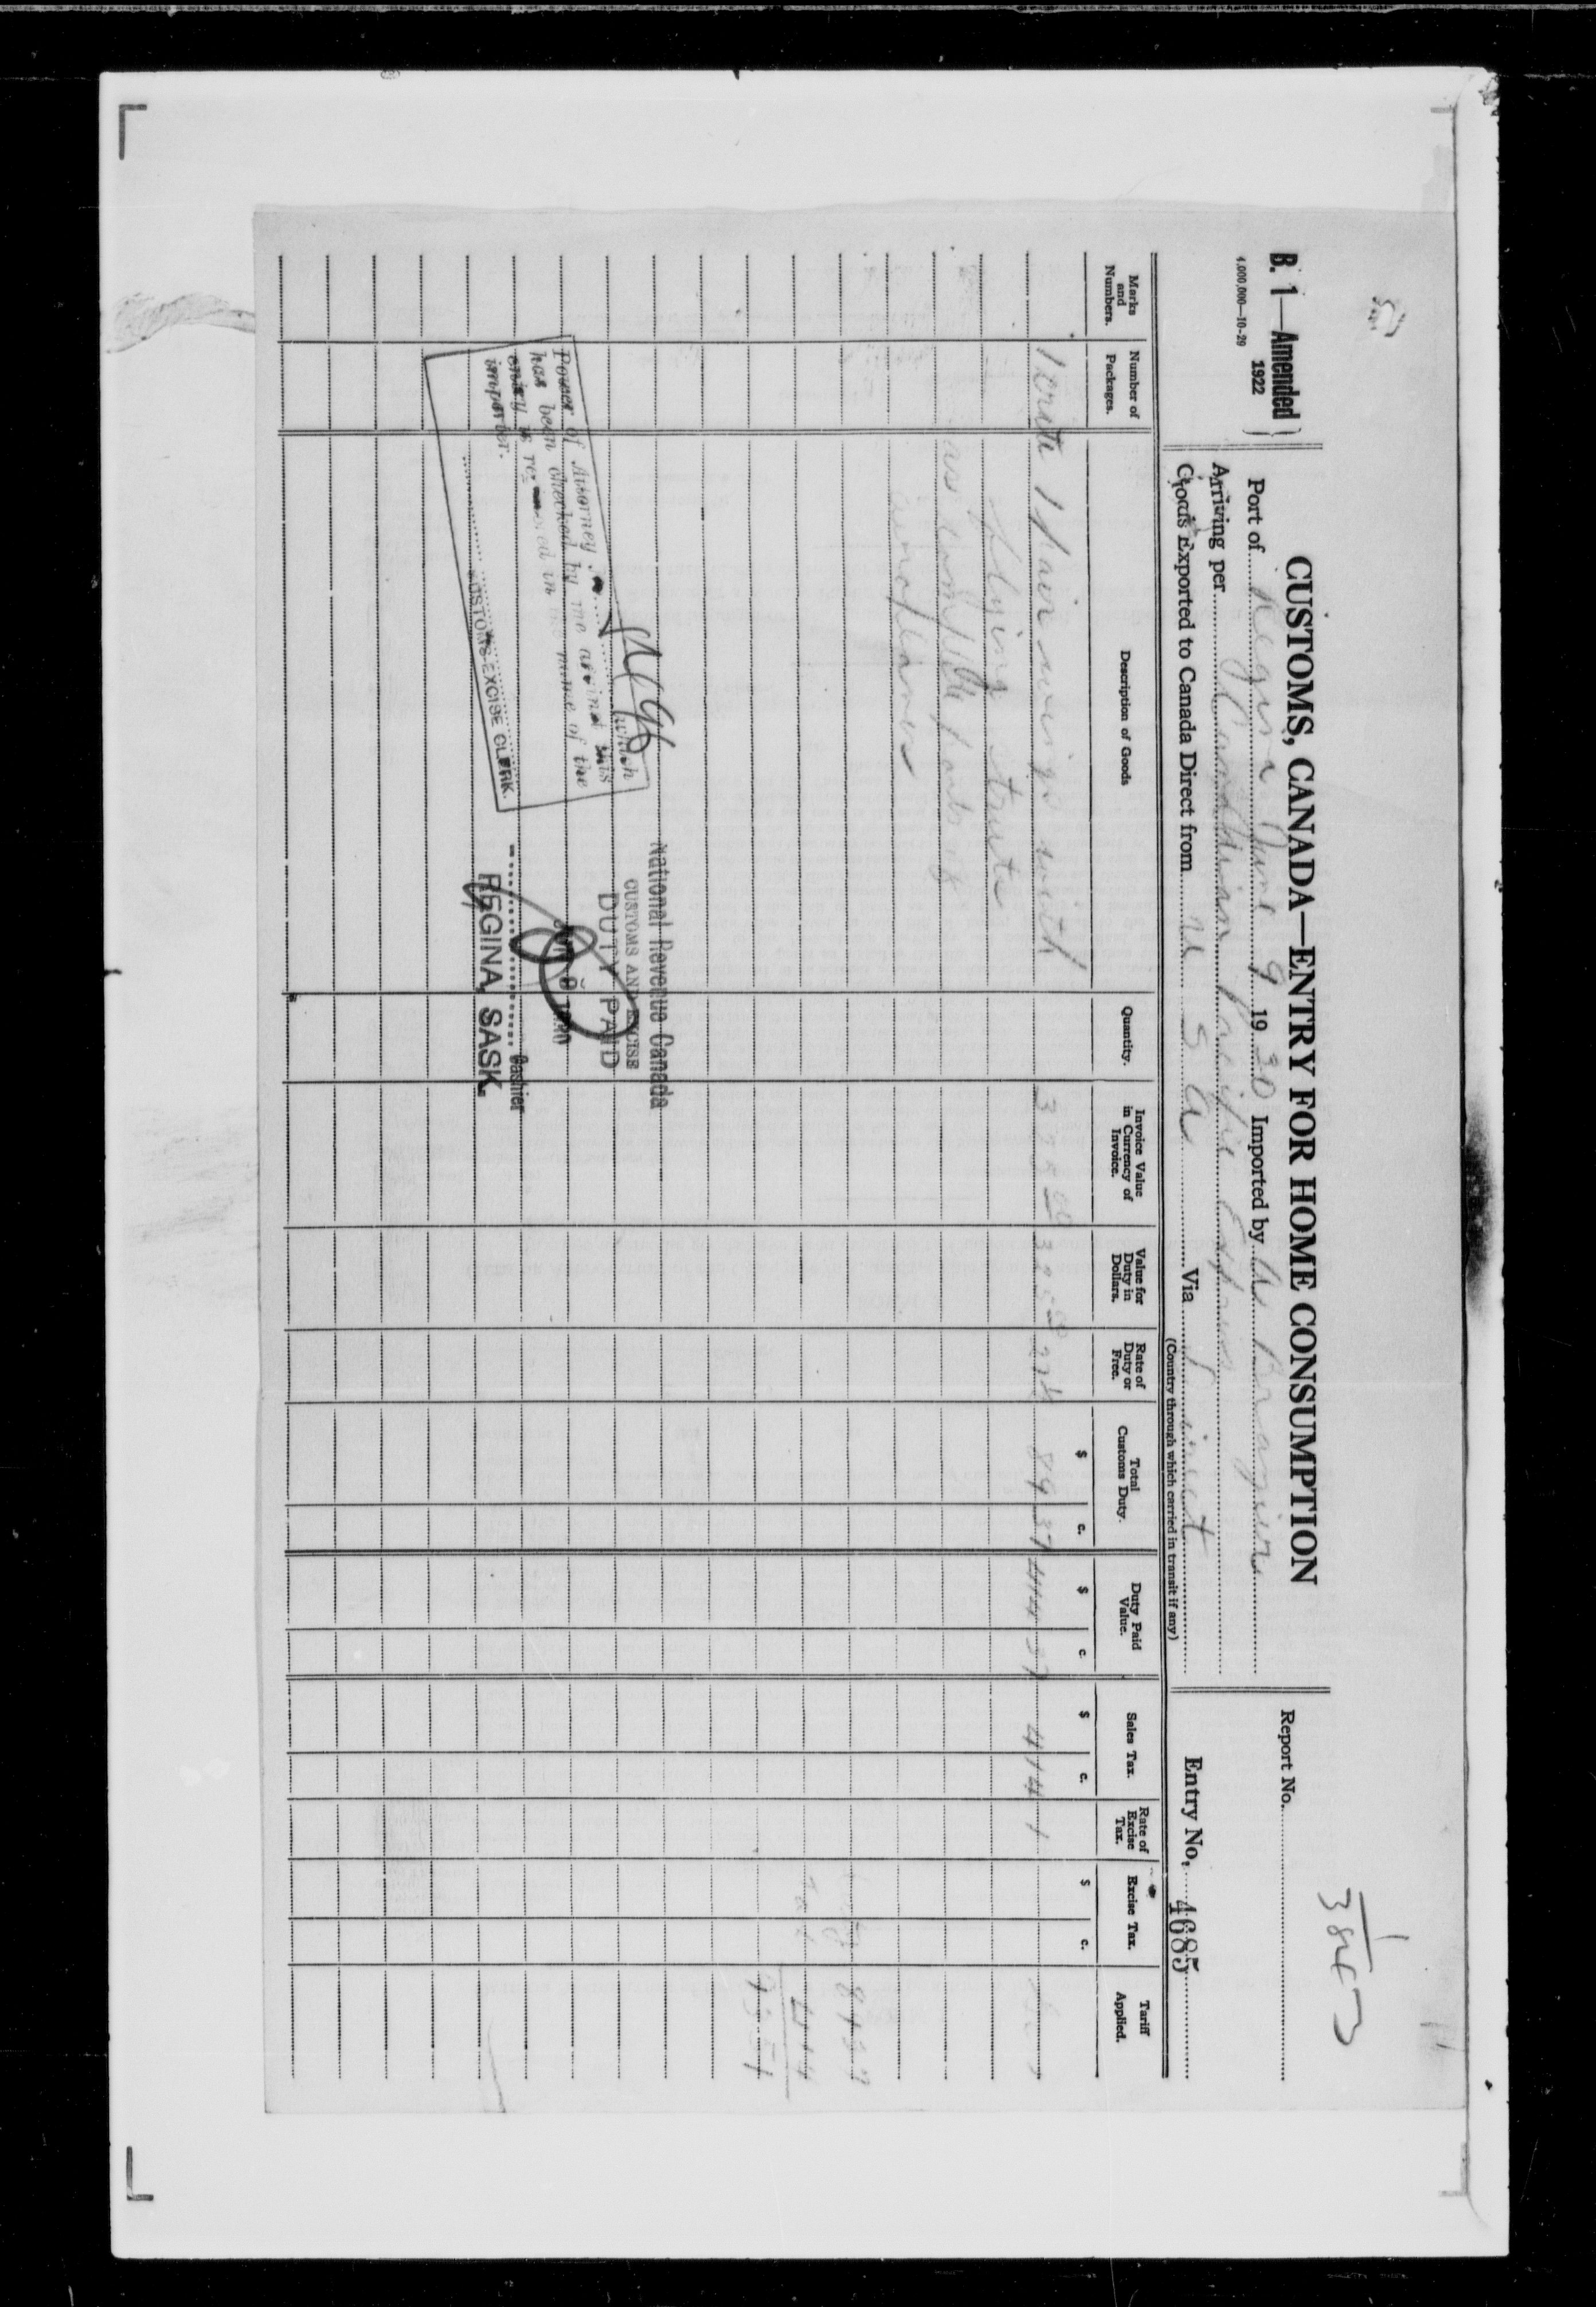 B. 1—Amended }
1922
4,000,000—10-29
CUSTOMS, CANADA—ENTRY FOR HOME CONSUMPTION
Port of Regina June 9 19 30 Imported by
Arriving per Canadian Pacific Express
Goods Exported to Canada Direct from U S A Via Direct
(Country through which carried in transit if any)
Report No.
Entry No. 4685
Marks and Numbers.
Number of Packages.
Description of Goods
Quantity.
Invoice Value in Currency of Invoice.
Value for Duty in Dollars.
Rate of Duty or Free.
Total Customs Duty.
Duty Paid Value.
Sales Tax.
Rate of Excise Tax.
Excise Tax.
Tariff Applied.
$ c. $ c. $ c. $ c.
1 crate 1 Pair wings with 325 00 325 00 27½ 89 37 414 37 4 14
flying struts
as complete parts of
aeroplanes
89 37
4 14
93 51
National Revenue Canada
CUSTOMS AND EXCISE
DUTY PAID
JUN 9 1930
Cashier
REGINA, SASK.
Power of Attorney which
has been checked by me against this
entry is re in the name of the
importer.
CUSTOMS-EXCISE CLERK.